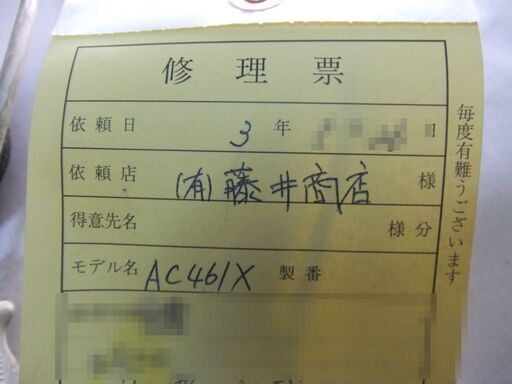 修理票
依頼日 3年 日
依頼店 (有)藤井商店 様
得意先名 様分
モデル名 AC461X 製番
毎度有難うございます